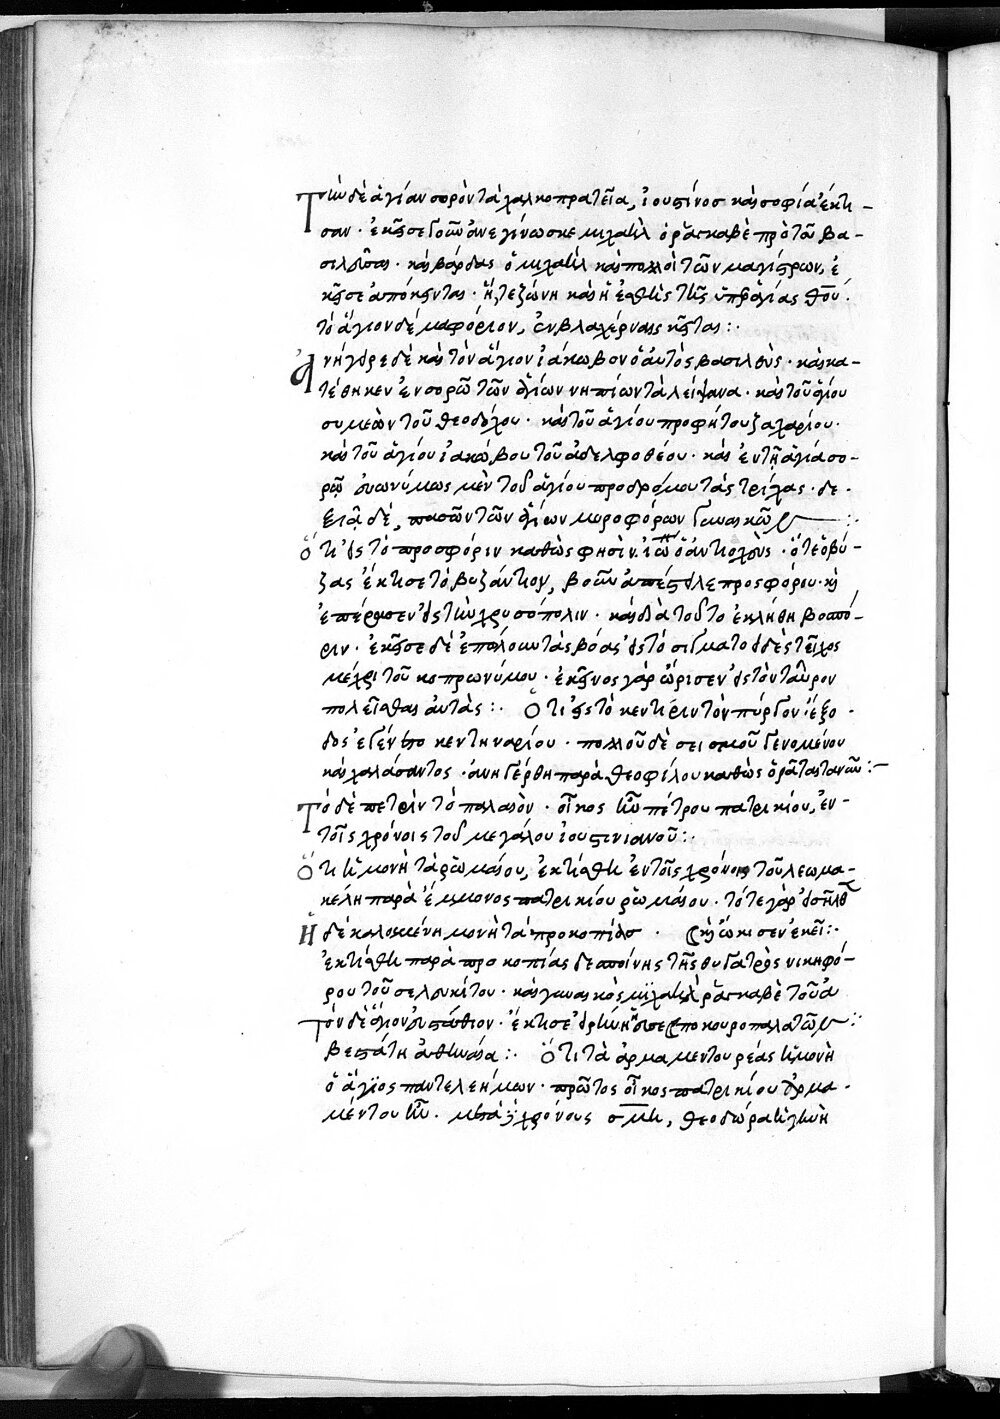 Τὴν δὲ ἁγίαν σορὸν τὰ χαλκοπρατεῖα, ἰουστίνος καὶ σοφία ἔκτι-
σαν· ἐκεῖσε γοῦν ἀνεγίνωσκε μιχαὴλ ὁ ῥάγκαβὲ πρὸ τοῦ βα-
σιλεῦσαι· καὶ βάρδας ὁ μιχαὴλ καὶ πολλοὶ τῶν μαγίστρων, ἐ
κεῖσε ἀπόκεινται· ἥ τε ζώνη καὶ ἡ ἐσθὴς τῆς ὑπεραγίας θκου·
τὸ ἅγιον δὲ μαφόριον, ἐν βλαχέρναις κεῖται:·
Ἀνήγειρε δὲ καὶ τὸν ἅγιον ἰάκωβον ὁ αὐτὸς βασιλεὺς· καὶ κα-
τέθηκεν ἐν σορῶ τῶν ἁγίων νηπίων τὰ λείψανα· καὶ τοῦ ἁγίου
συμεὼν τοῦ θεοδόχου· καὶ τοῦ ἁγίου προφήτου ζαχαρίου·
καὶ τοῦ ἁγίου ἰακώβου τοῦ ἀδελφοθέου· καὶ ἐν τῇ ἁγία σο-
ρῷ εὐωνύμως μὲν τοῦ ἁγίου προδρόμου τὰς τρίχας· δε-
ξιᾷ δέ, πασῶν τῶν ἁγίων μυροφόρων γυναικῶν:·
Ὅτι εἰς τὸ προσφόριν καθὼς φησὶν ὁ ἀντιοχεὺς· ὅτε ὁ βύ-
ζας ἔκτισε τὸ βυζάντιον, βοῦν ἀπέστειλε προσφόρου· κὴ
ἐπέρασεν εἰς τὴν χρυσόπολιν· καὶ διὰ τοῦτο ἐκλήθη βοσπό-
ριν· ἐκεῖσε δὲ ἐπώλουν τὰς βόας εἰς τὸ σίγμα τοειδὲς τεῖχος
μέχρι τοῦ κοπρωνύμου· ἐκεῖνος γὰρ ὥρισεν εἰς τὸν ταῦρον
πολεῖσθαι αὐτὰς:· Ὅτι εἰς τὸ κεντήριν τὸν πύργον· ἔξο-
δος ἐγένετο κεντηναρίου· πολλοῦ δὲ σεισμοῦ γενομένου
καὶ χαλάσαντος· ἀνηγέρθη παρὰ θεοφίλου καθὼς ὁρᾶται τανῦν:—
Τὸ δὲ πετρὶν τὸ παλαιὸν· οἶκος ἦν πέτρου πατρικίου, ἐν-
τοῖς χρόνοις τοῦ μεγάλου ἰουστινιανοῦ:·
Ὅτι ἡ μονὴ τὰ ῥωμαίου, ἐκτίσθη ἐν τοῖς χρόνοις τοῦ λεωμα-
κέλη παρὰ ἔμμονος πατρικίου ῥωμαίου· τότε γὰρ εἰσῆλθε
Ἡ δὲ καλουμένη μονὴ τὰ προκοπίας· κὴ ὤκισεν ἐκεῖ:·
ἐκτίσθη παρὰ προκοπίας δεσποίνης τῆς θυγατρὸς νικηφό-
ρου τοῦ σελευκίτου· καὶ γυναικὸς μιχαὴλ ῥάγκαβὲ τοῦ ἀ
Τὸν δὲ ἅγιον εὐστάθιον· ἔκτισε εἰρήνη
βεστάτη ἀθηναία:· Ὅτι τὰ ἁρμαμεντουρέας ἡ μονὴ
ὁ ἅγιος παντελεήμων· πρῶτος οἶκος πατρικίου ἁρμα-
μέντου ἦν· μετὰ χρόνους σμη, θεοδώρα ἡ γυνὴ